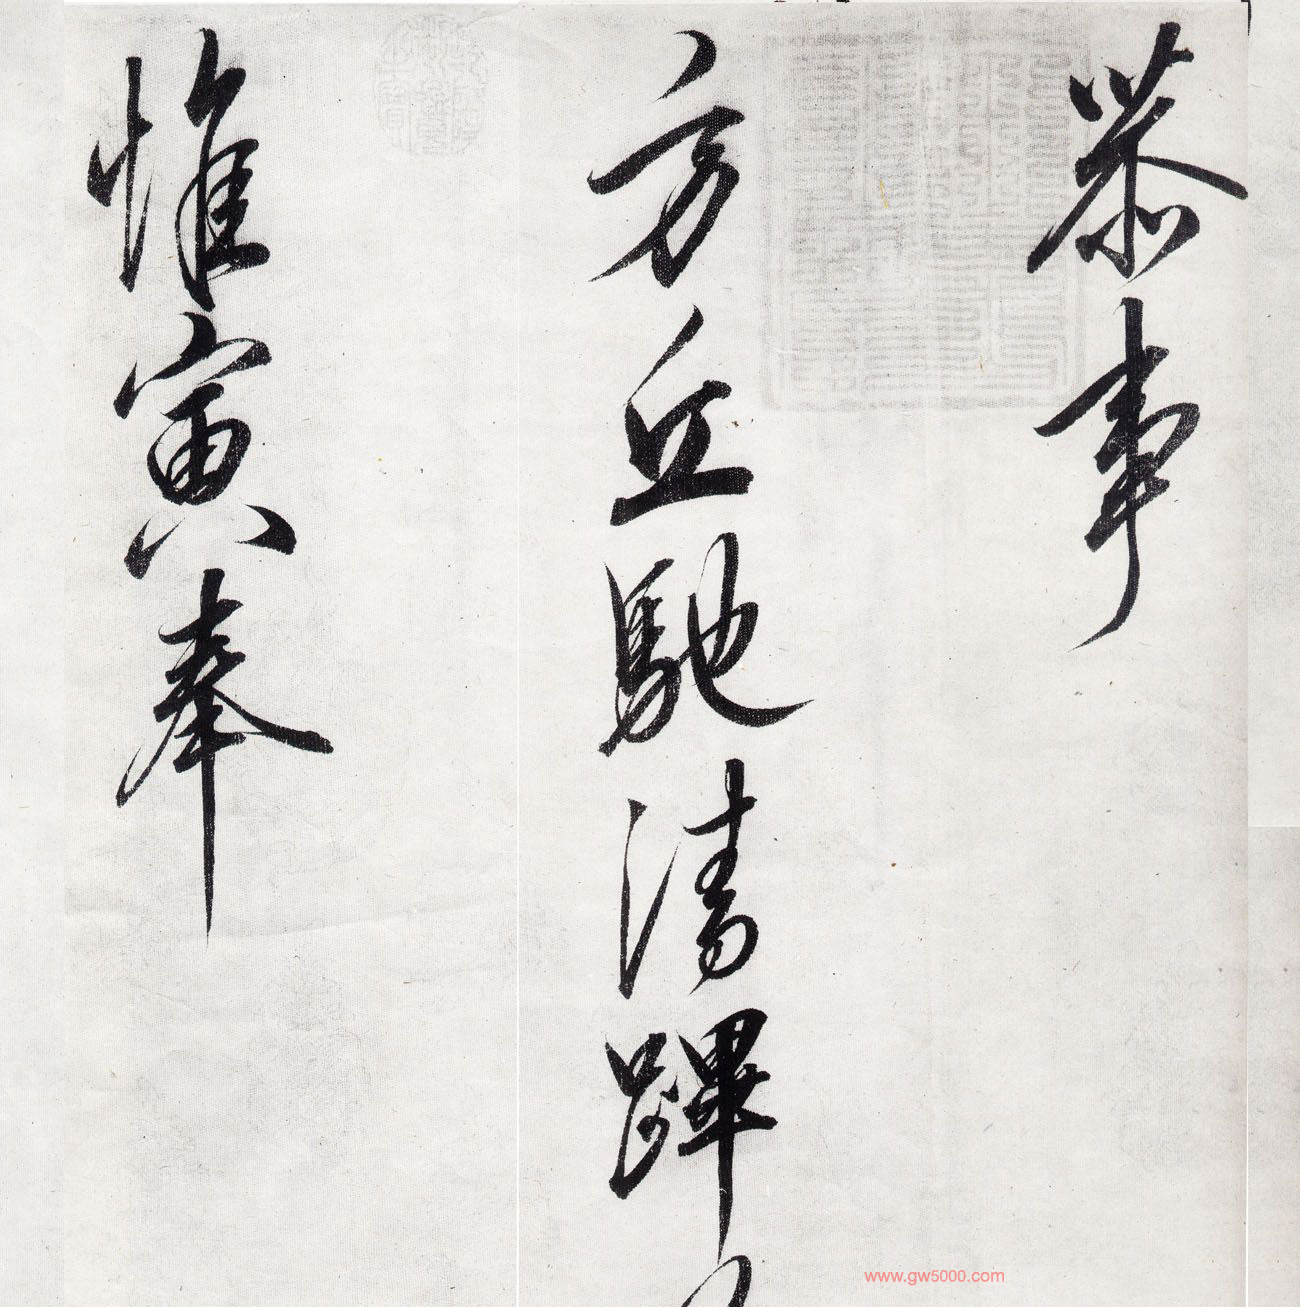 恭事
方丘馳清蹕
惟寅奉
www.gw5000.com